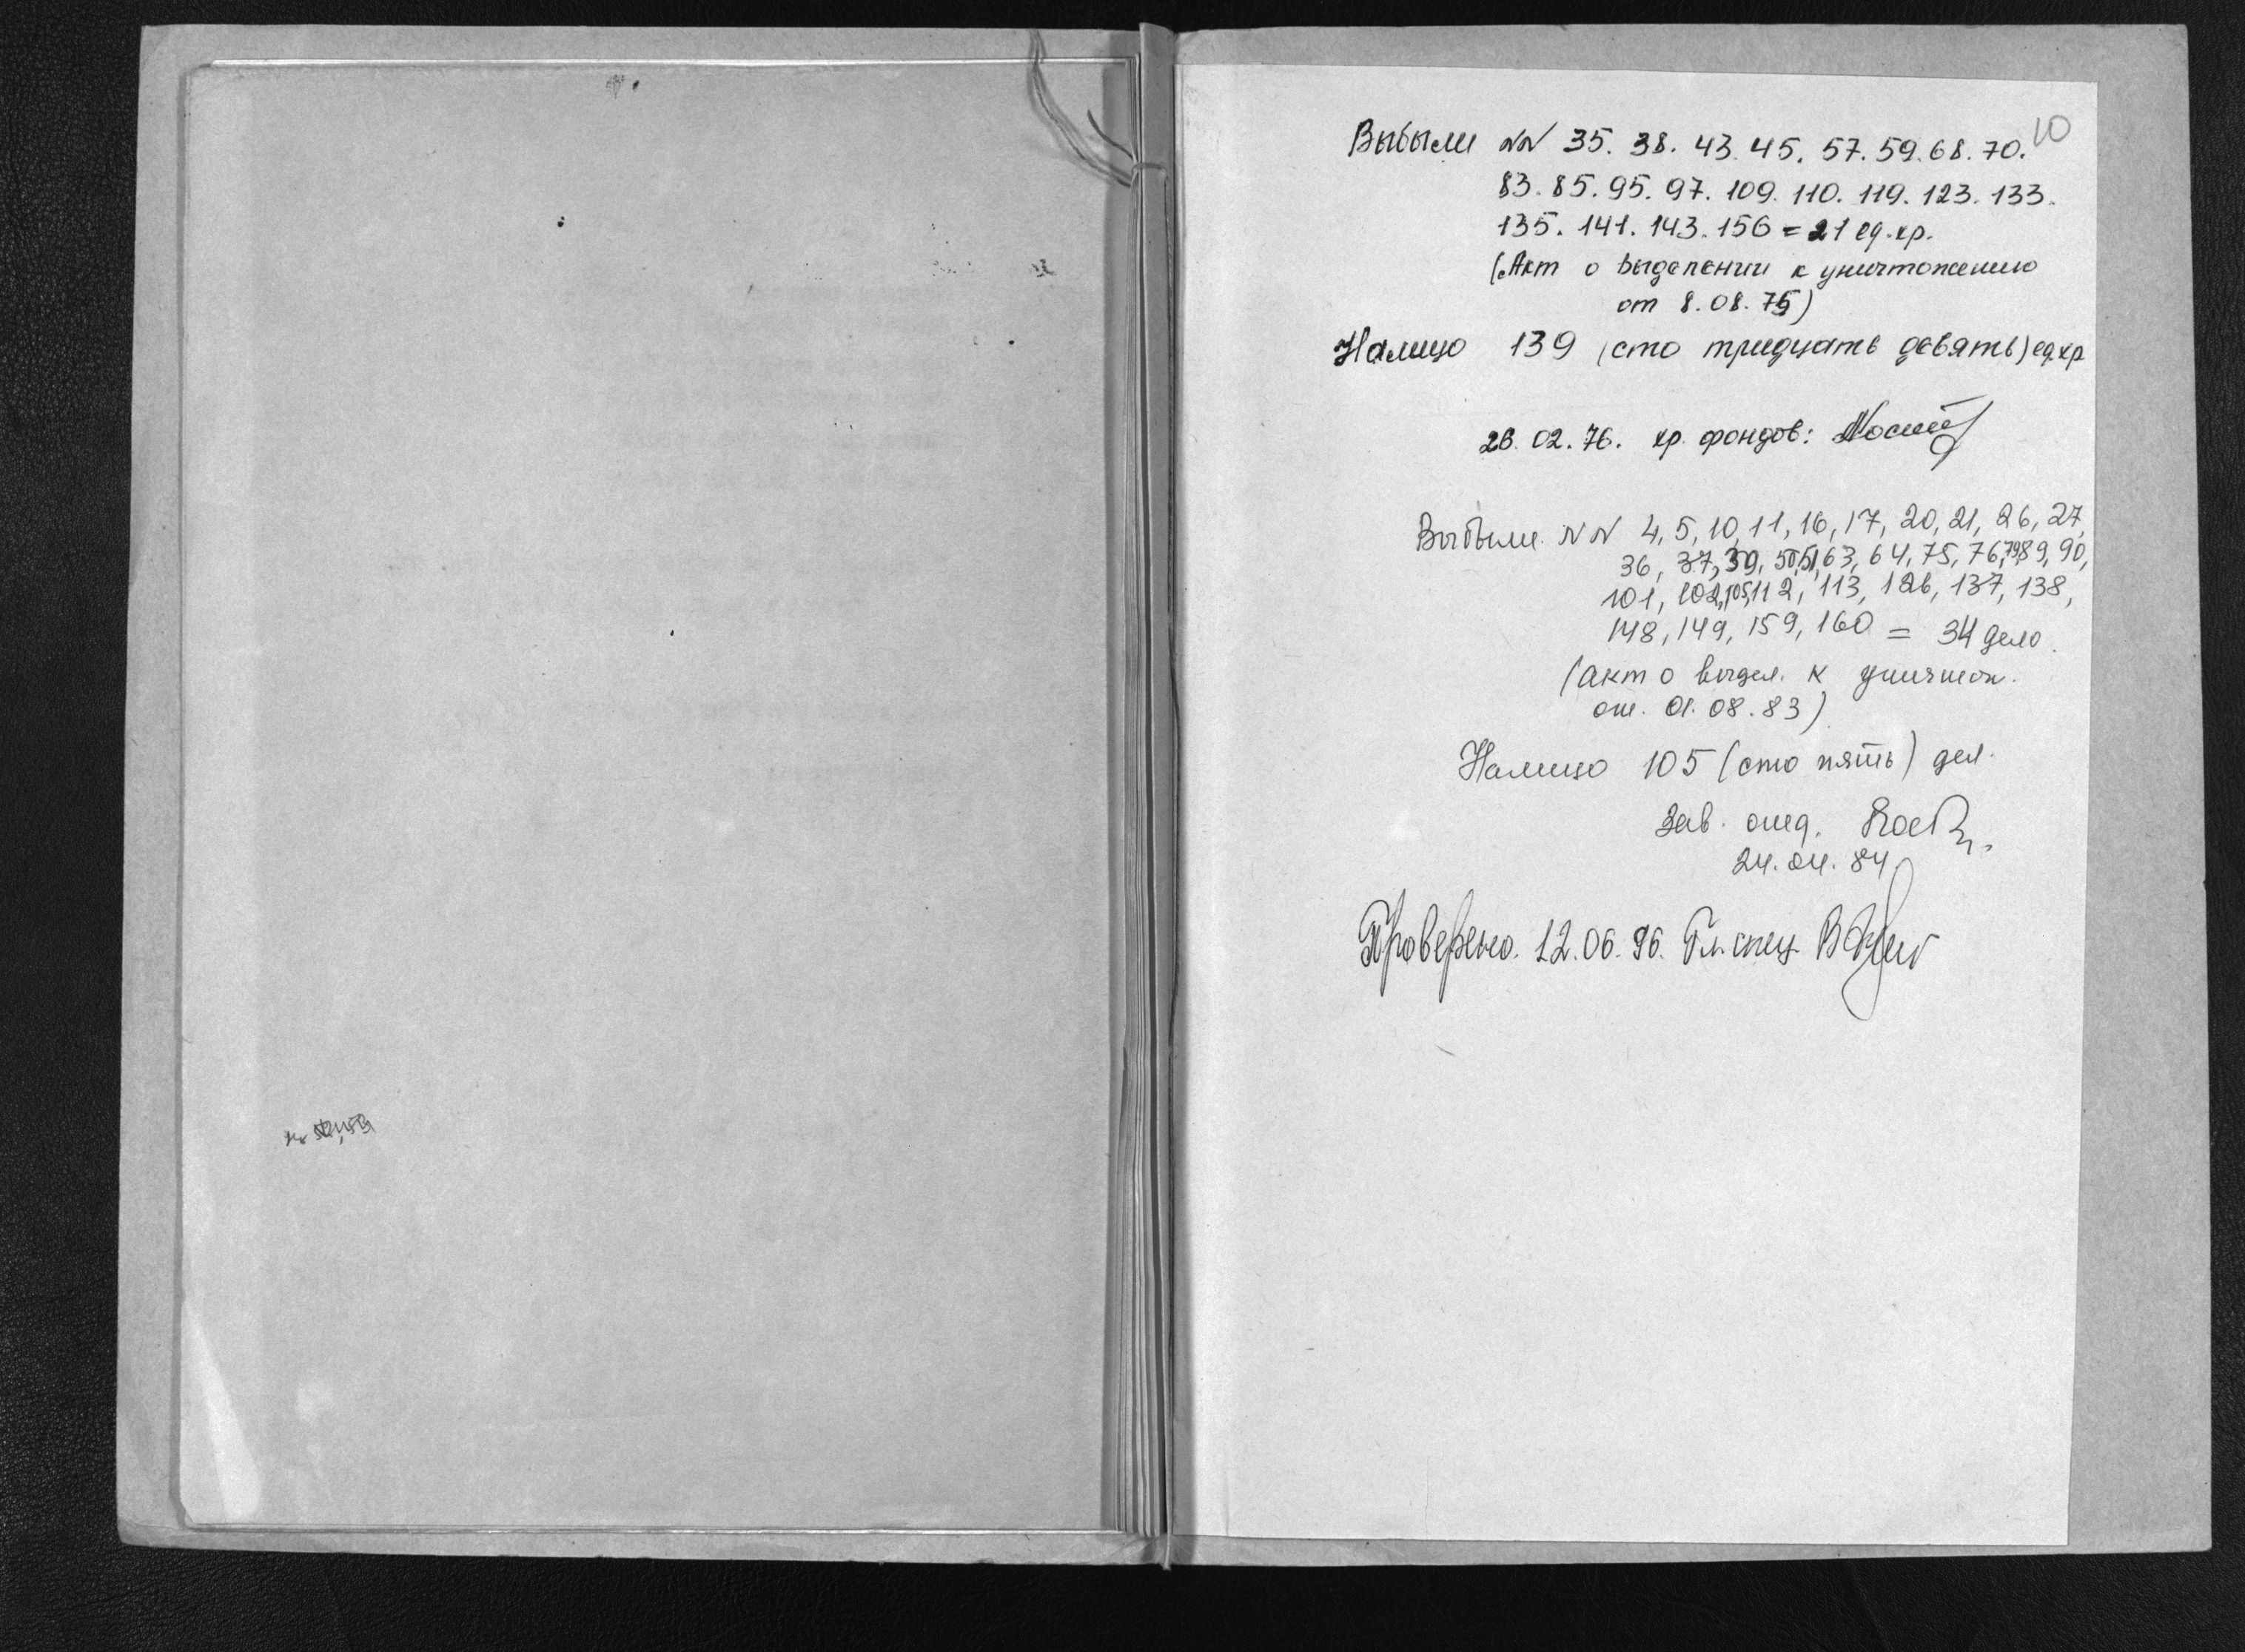 10
Выбыли NN 35. 38. 43. 45. 57. 59. 68. 70.
83. 85. 95. 97. 109. 110. 119. 123. 133.
135. 141. 143. 156 = 21 ед. хр.
(Акт о выделении к уничтожению
от 8.08.75)
Налицо 139 (сто тридцать девять) ед. хр
26.02.76. хр. фондов:
Выбыли NN 4, 5, 10, 11, 16, 17, 20, 21, 26, 27,
36, 37, 39, 50, 51, 63, 64, 75, 76, 79, 89, 90,
101, 102, 105, 112, 113, 126, 137, 138,
148, 149, 159, 160 = 34 дело.
(акт о выдел. к уничтож.
от. 01.08.83)
Налицо 105 (сто пять) дел.
Зав. отд.
24.04.84
Проверено. 12.06.96. Гл. спец.